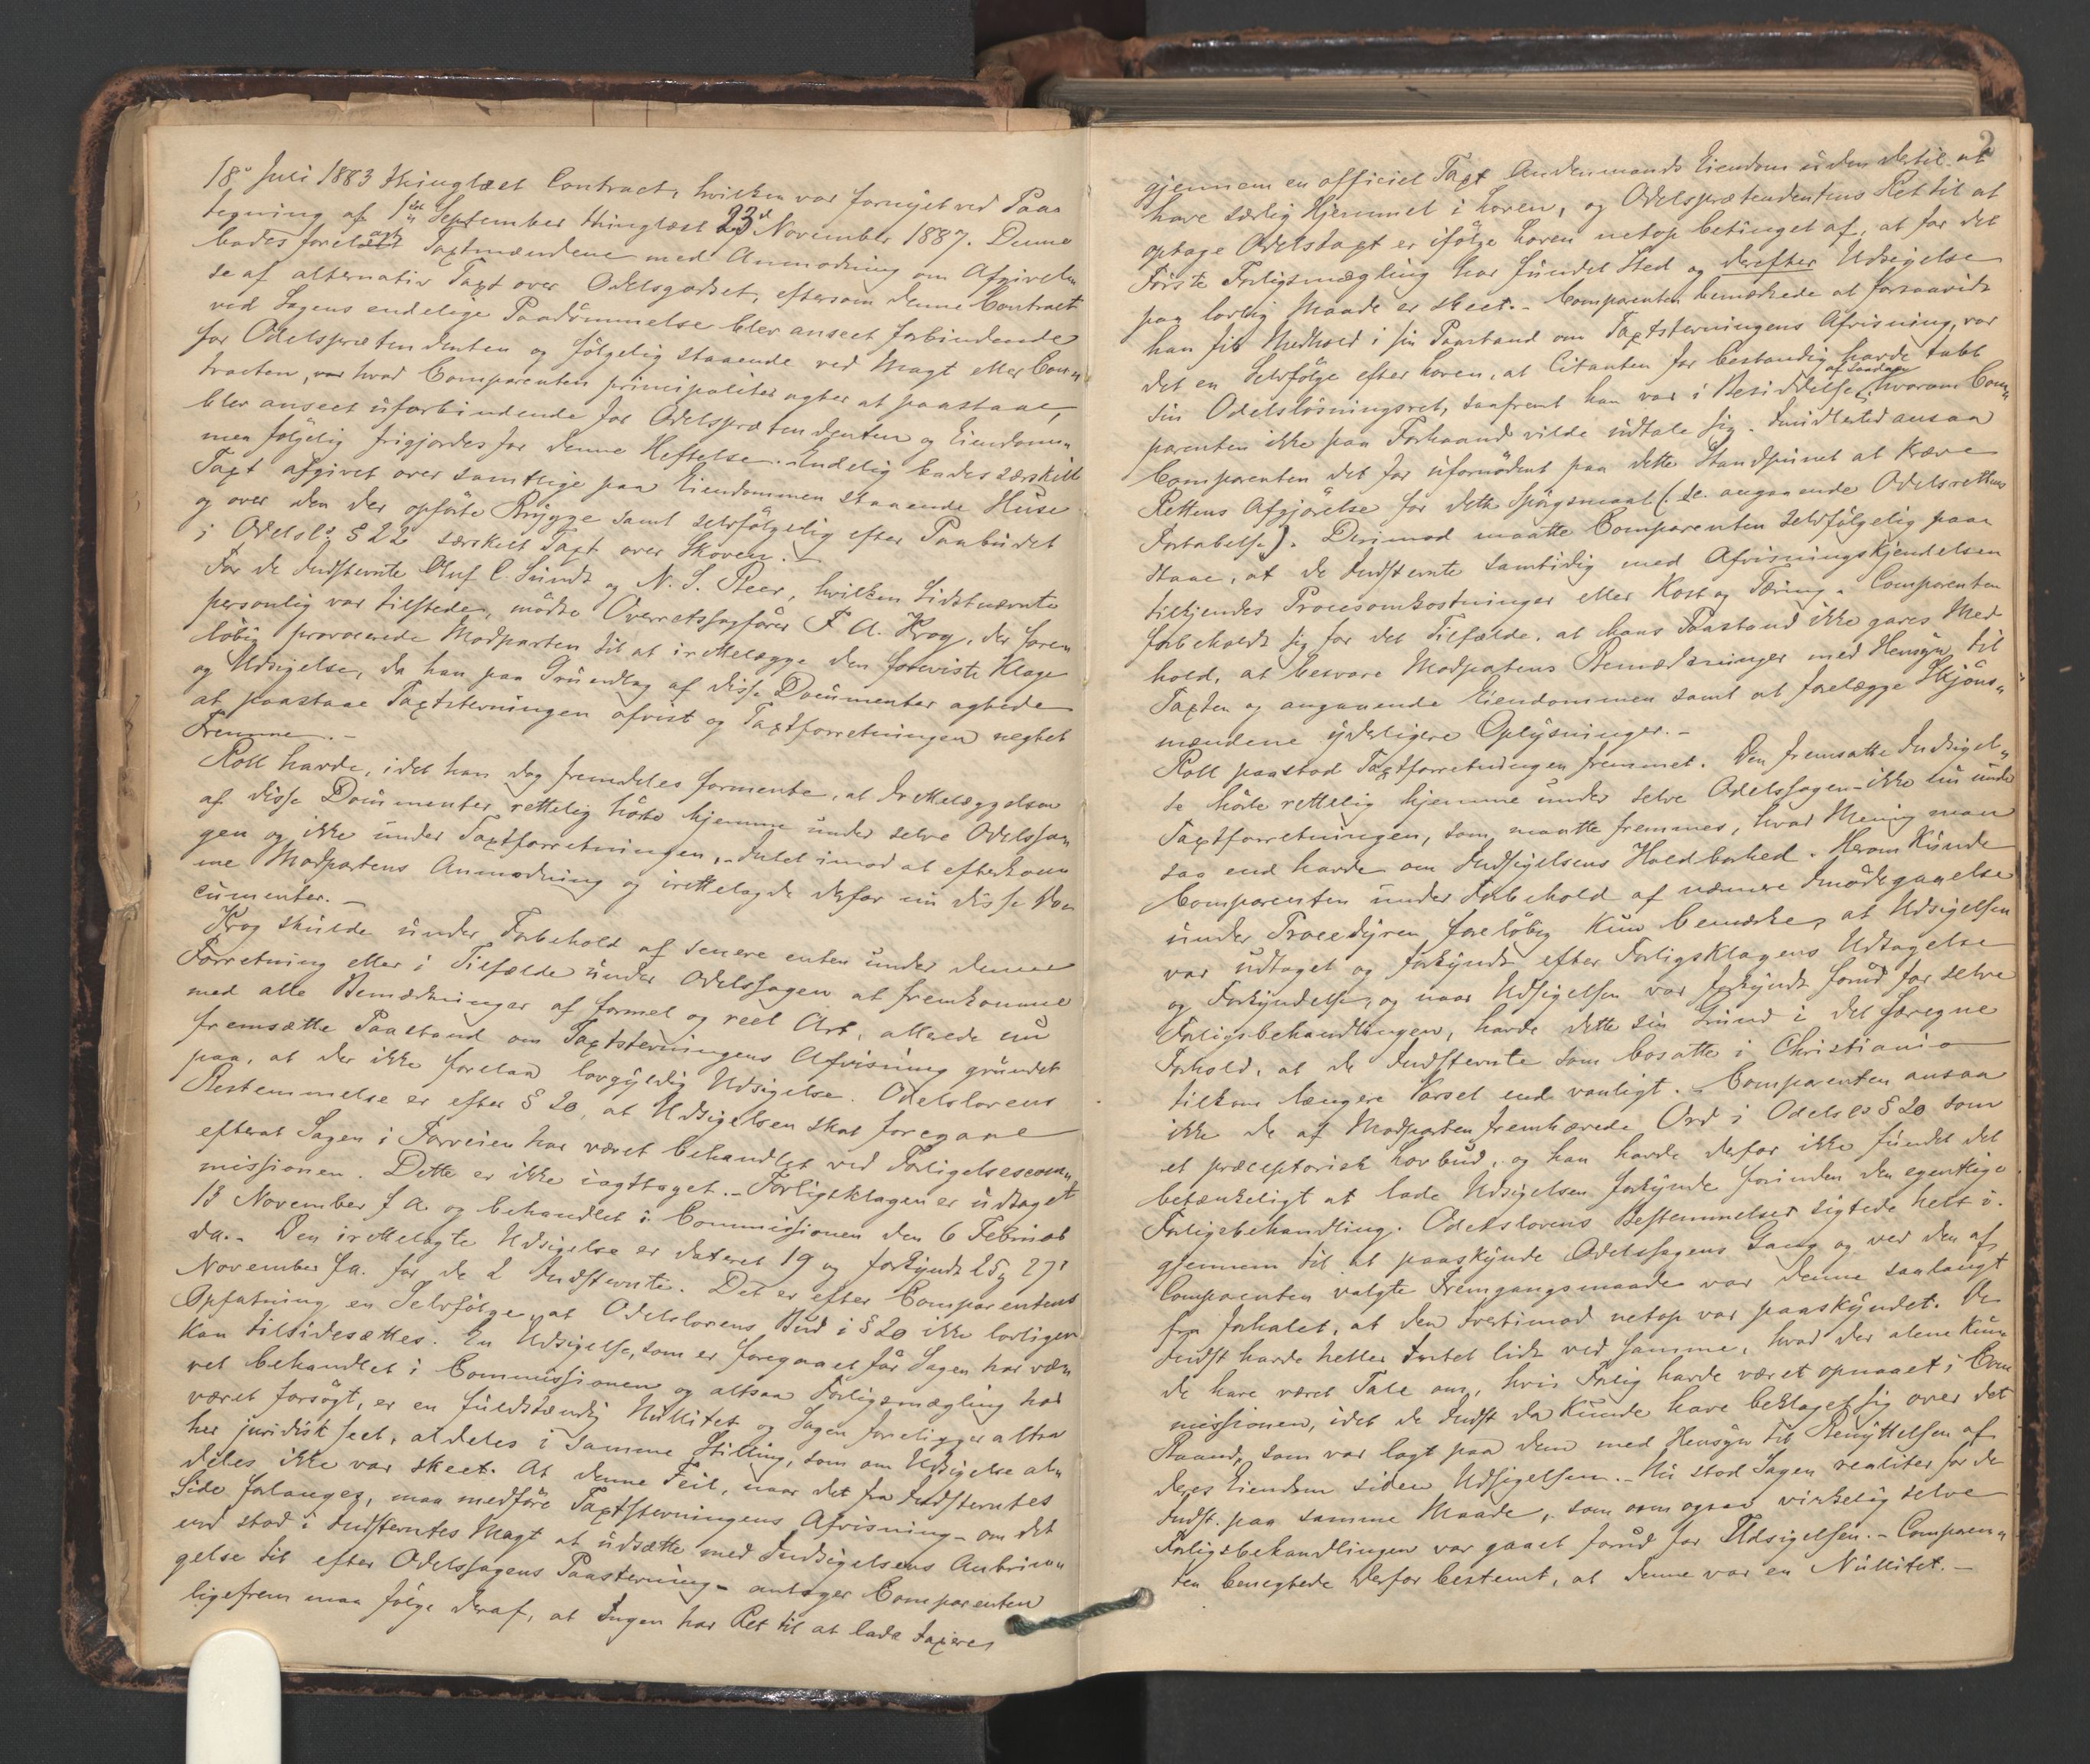 18de Juli 1883 thinglæst Contract, hvilken var fornyet ved Paa„
tegning af 1ste September thinglæst 23d November 1887. Denne
bades forelagt Taxtmændene med Anmodning om Afgivel„
se af alternativ Taxt over Odelsgodset, eftersom denne Contract
ved Sagens endelige Paadömmelse blev anseet forbindende
for Odelsprætendenten og fölgelig staaende ved Magt eller Con„
tracten, var hvad Comparenten principaliter agter at paastaae,
blev anseet uforbindende for Odelsprætendenten og Eiendom„
men fölgelig frigjordes for denne Heftelse. Endelig bades særskilt
Taxt afgivet over samtlige paa Eiendommen staaende Huse
og over den der opförte Brygge samt selvfölgelig efter Paabudet
i Odelsls § 22 særskilt Taxt over Skoven. -
For de Indstevnte Oluf C. Sundt og N. S. Beer, hvilken Sidstnævnte
personlig var tilstede, mödte Overretssagförer F. A. Krog, der fore„
löbig provocerede Modparten til at irettelægge den foreviste Klage
og Udsigelse, da han paa Grundlag af disse Documenter agtede
at paastaae Taxtstevningen afvist og Taxtforretningen negtet
Fremme. -
Roll havde, idet han dog fremdeles formente, at Irettelæggelsen
af disse Documenter rettelig hörte hjemme under selve Odelssa„
gen og ikke under Taxtforretningen, Intet imod at efterkom„
me Modpartens Anmodning og irettelagde derfor nu disse Do„
cumenter. -
Krog skulde under Forbehold af senere enten under denne
Forretning eller i Tilfælde under Odelssagen at fremkomme
med alle Bemærkninger af formel og reel Art, allerede nu
fremsætte Paastand om Taxtstevningens Afvisning grundet
paa, at der ikke forelaa lovgyldig Udsigelse. Odelslovens
Bestemmelse er efter § 20, at Udsigelsen skal foregaae
efterat Sagen i Forveien har været behandlet ved Forligelsescom„
missionen. Dette er ikke iagttaget. - Forligsklagen er udtaget
18 November f. A. og behandlet i Commissionen den 6 Februar
da. - Den irettelagte Udsigelse er dateret 19 og forkyndt 25 og 27'
November f. a. for de 2 Indstevnte. Det er efter Comparentens
Opfatning en Selvfölge, at Odelslovens Bud i § 20 ikke lovligen
kan tilsidesættes. En Udsigelse, som er foregaaet för Sagen har væ„
ret behandlet i Commissionen og altsaa Forligsmægling har
været forsögt, er en fuldstændig Nullitet og Sagen foreligger altsaa
her juridisk seet, aldeles i samme Stilling, som om Udsigelse al„
deles ikke var skeet. At denne Feil, naar det fra Indstevntes
Side forlanges, maa medföre Taxtstevningens Afvisning - om det
end stod i Indstevntes Magt at udsætte med Indsigelsens Anbrin„
gelse til efter Odelssagens Paastevning - antager Comparenten
ligefrem maa fölge deraf, at Ingen har Ret til at lade taxere
2
gjennem en officiel Taxt Andenmands Eiendom uden dertil at
have særlig Hjemmel i Loven, og Odelsprætendentens Ret til at
optage Odelstaxt er ifölge Loven netop betinget af, at for det
Förste Forligsmægling har fundet Sted og derefter Udsigelse
paa lovlig Maade er skeet. - Comparenten bemærkede at forsaavidt
han fik Medhold i sin Paastand om Taxtstevningens Afvisning, var
det en Selvfölge efter Loven, at Citanten for bestandig havde tabt
sin Odelslösningsret, saafremt han var i Besiddelse af saadan, hvorom Com„
parenten ikke paa Forhaand vilde udtale sig. Imidlertid ansaa
Comparenten det for ufornödent paa dette Standpunct at kræve
Rettens Afgjörelse for dette Spörgsmaal (: angaaende Odelsrettens
Fortabelse). Derimod maatte Comparenten selvfölgelig paa„
staae, at de Indstevnte samtidig med Afvisningskjendelsen
tilkjendes Procesomkostninger eller Kost og Tæring. Comparenten
forbeholdt sig for det Tilfælde, at hans Paastand ikke gaves Med„
hold, at besvare Modpatens Bemærkninger med Hensyn til
Taxten og angaaende Eiendommen samt at forelægge Skjöns„
mændene yderligere Oplysninger. -
Roll paastod Taxtforretningen fremmet. Den fremsatte Indsigel„
se hörte rettelig hjemme under selve Odelssagen - ikke nu under
Taxtforretningen, som maatte fremmes, hvad Mening man
saa end havde om Indsigelsens Holdbarhed. Herom kunde
Comparenten under Forbehold af nærmere Imödegaaelse
under Proceduren foreløbig kun bemærke, at Udsigelsen
var udtaget og forkyndt efter Forligsklagens Udtagelse
og Forkyndelse, og naar Udsigelsen var forkyndt forud for selve
Forligsbehandlingen, havde dette sin Grund i det særegne
Forhold, at de Indstevnte som bosatte i Christiania
tilkom længere Varsel end vanligt. - Comparenten ansaa
ikke de af Modparten fremhævede Ord i Odelsls § 20 som
et præceptorisk Lovbud, og han havde derfor ikke fundet det
betænkeligt at lade Udsigelsen forkynde forinden den egentlige
Forligsbehandling. Odelslovens Bestemmelser sigtede helt i„
gjennem til at paaskynde Odelssagens Gang og ved den af
Comparenten valgte Fremgangsmaade var denne saalangt
fra forhalet, at den tvertimod netop var paaskyndet. De
Indst havde heller Intet lidt ved samme, hvad der alene kun„
de have været Tale om, hvis Forlig havde været opnaaet i Com„
missionen, idet de Indst da kunde have beklaget sig over det
Baand, som var lagt paa dem med Hensyn til Benyttelsen af
deres Eiendom siden Udsigelsen. - Nu stod Sagen realiter for de
Indst. paa samme Maade, som om ogsaa virkelig selve
Forligsbehandlingen var gaaet forud for Udsigelsen. - Comparen„
ten benegtede derfor bestemt, at denne var en Nullitet. -